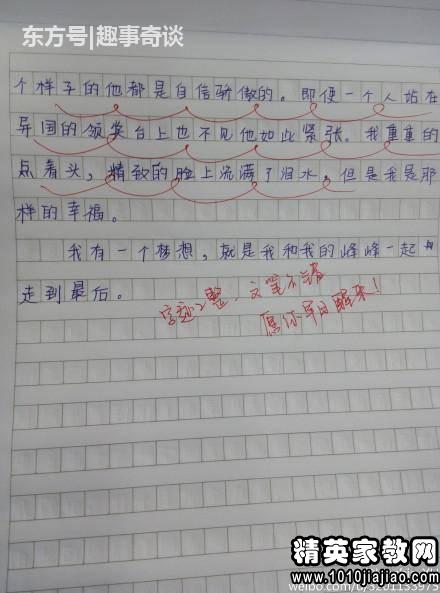 东方号|趣事奇谈
个样子的他都是自信骄傲的。即便一个人站在
异国的领奖台上也不见他如此紧张。我重重的
点着头，精致的脸上流满了泪水，但是我是那
样的幸福。
我有一个梦想，就是我和我的峰峰一起
走到最后。
字迹工整，文笔不错
愿你早日醒来！
精英家教网
www.1010jiajiao.com
weibo.com/u/3201133975